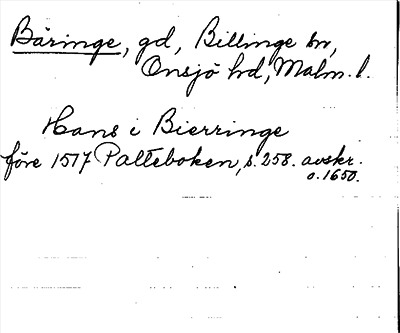 Bäringe, gd, Billinge sn,
Onsjö hd, Malm. l.
Hans i Bierringe
före 1517 Palteboken, s. 258. avskr.
o. 1650.